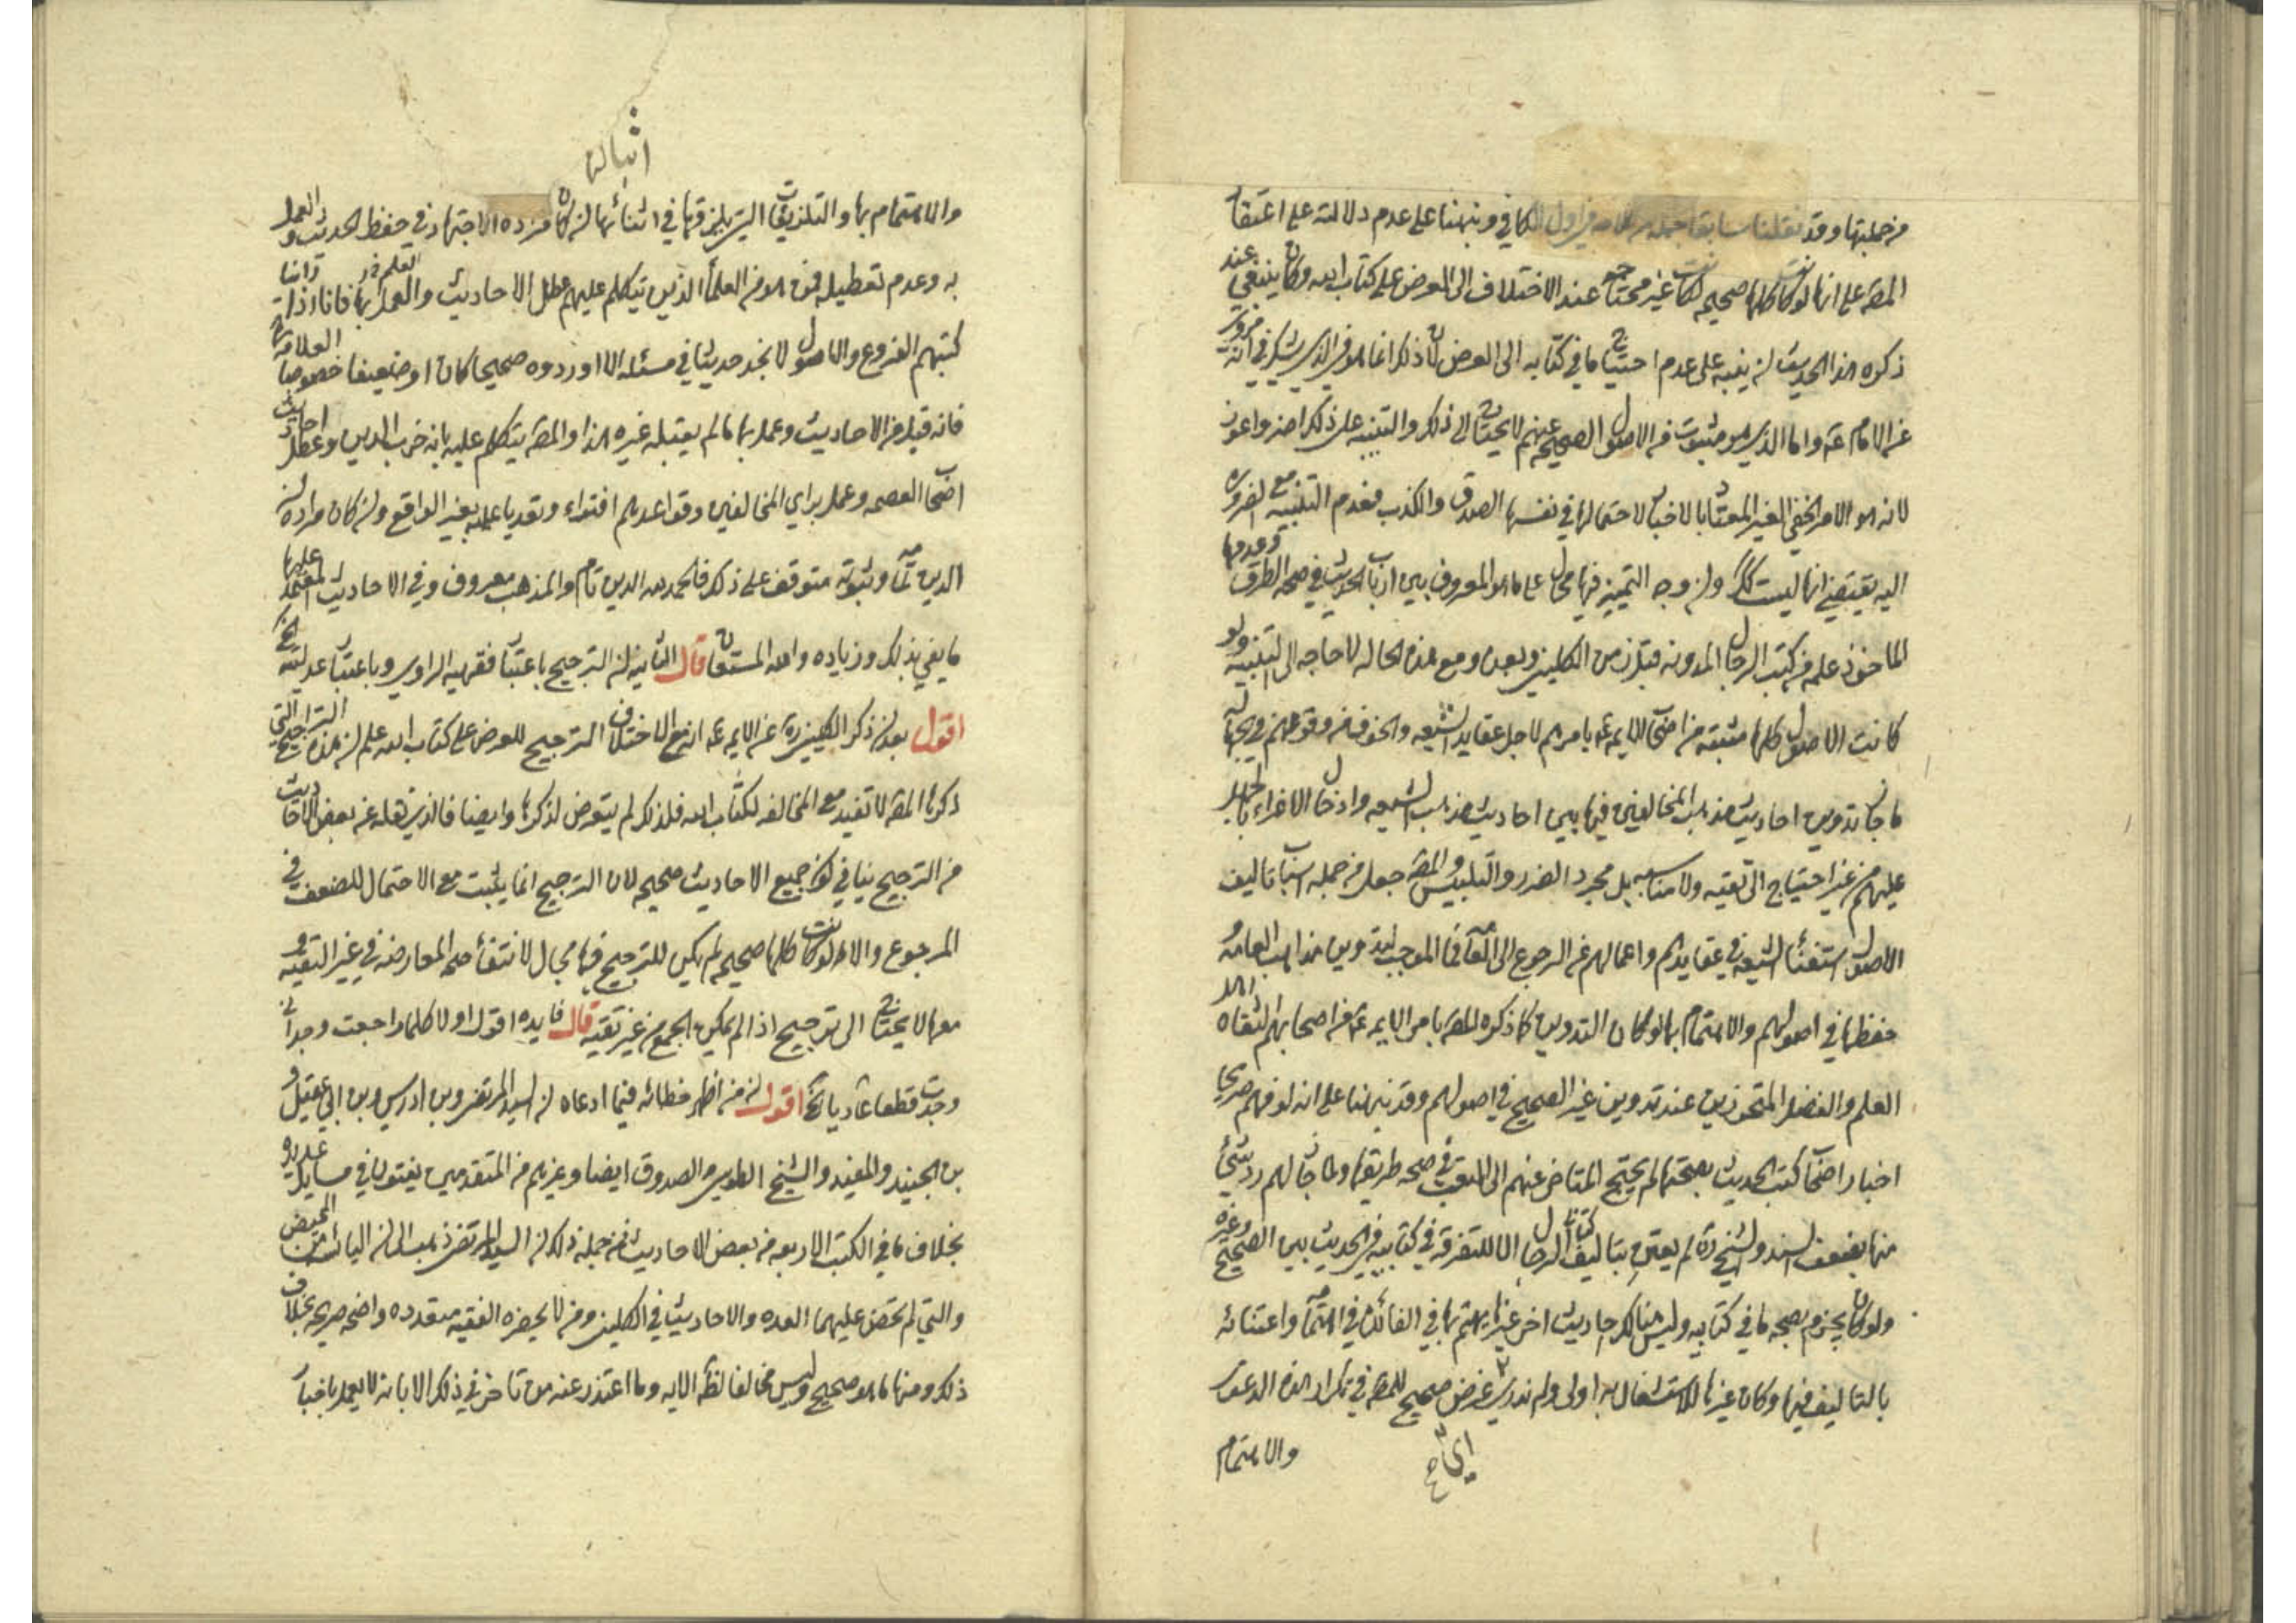 من جملتها وقد نقلنا سابقا جملة من كلامه في اول الكافي ونبهنا على عدم دلالته على اعتقاد
المصه على انها لو كانت كلها صحيحه لكانت غير محتاجة عند الاختلاف الى العرض على كتاب الله وكان ينبغي عند
ذكره هذا الحديث ان ينبه على عدم احتياج ما في كتابه الى العرض لان ذلك انما هو في الذي يشك في انه مروي
عن الامام عه واما الذي هو مثبوت في الاصول الصحيحه عنهم لا يحتاج الى ذلك والتنبيه على ذلك اهم واعون
لانه هو الامر الخفي الغير المعتاد بالاخبار لاحتمالها في نفسها الصدق والكذب فعدم التنبيه مع الضروره
اليه يقتضي انها ليست كذلك وان وجه التمييز فيها محال على ما هو المعروف بين ارباب الحديث في صحه الطرق وعدمها
الماخوذ علمه من كتب الرجال المدونه قبل زمن الكليني وبعده ومع هذه الحاله لا حاجه الى التنبيه ولو
كانت الاصول كلها مثبته من اصحاب الايمه عه بامرهم لاجل عقايد الشيعه والخوف من وقوعهم في
ما جاز تدوين احاديث مذهب المخالفين فيها بين احاديث مذهب الشيعه وادخال الاغراء بالجهل
عليهم من غير احتياج الى تقيه ولا مناسبه بل مجرد الضرر والتلبيس والمصه جعل من جمله اسباب تاليف
الاصول استغناء الشيعه في عقايدهم واعمالهم عن الرجوع الى العامه فما الموجب لتدوين مذاهب العامه و
حفظها في اصولهم والاهتمام بها لو كان التدوين كما ذكره المصه بامر الايمه عه من اصحابهم الثقاه اهل
العلم والفضل المتحرزين عند تدوين غير الصحيح في اصولهم وقد نبهنا على انه لو فهم صريحا
اخبار اصحاب كتب الحديث بصحتها لم يحتج المتاخر عنهم الى التعب في صحه طريقها ولما جاز لهم رد شيء
منها بضعف السند والشيخ ره لم يعتن بتاليف كتاب الرجال الا للتفرقه في كتابيه في الحديث بين الصحيح وغيره
ولو كان يجزم بصحه ما في كتابيه وليس هنالك احاديث اخر غيرها يهتم بها في الفائده في اهتمامه واعتنائه
بالتاليف فيها وكان غيرها للاشتغال به اولى ولم ندر اي غرض صحيح للمصه في تكرار هذه الدعوى
والاهتمام
والاهتمام بها والتلزيقات التي يلزقها في اثنائها ان كان مراده الاجتهاد في حفظ الحديث والعمل
به وعدم تعطيله فمن هو من العلماء الذين يتكلم عليهم عطل الاحاديث والعلم والعمل بها فانا اذا راينا
كتبهم الفروع والاصول لا نجد حديثا في مسئله الا اوردوه صحيحا كان او ضعيفا خصوصا العلامه
فانه قبل من الاحاديث وعمل بها ما لم يقبله غيره هذا والمصه يتكلم عليه بانه خرب الدين وعطل احاديث
اصحاب العصمه وعمل براي المخالفين وقواعدهم افتراء وتعديا عليه بغير الواقع وان كان مراده ان
الدين تمامه وثبوته متوقف على ذلك فالحمد لله الدين تام والمذهب معروف وفي الاحاديث المعتمد عليها
ما يفي بذلك وزياده والله المستعان قال الثانيه ان الترجيح باعتبار فقهيه الراوي وباعتبار عدليته الخ
اقول بعد ان ذكر الكليني ره عن الايمه عه انه مع الاختلاف الترجيح للعرض على كتاب الله علم ان هذه التراجيح التي
ذكرها المصه لا تفيد مع المخالفه لكتاب الله فلذلك لم يتعرض لذكرها وايضا فالذي نقله عن بعض الاحاديث
من الترجيح ينافي كون جميع الاحاديث صحيحه لان الترجيح انما يثبت مع الاحتمال للضعف في
المرجوع والا لو كانت كلها صحيحه لم يكن للترجيح فيها مجال لانتفاء صحه المعارضه في غير التقيه و
معها لا يحتاج الى ترجيح اذا لم يمكن الجمع من غير تقيه قال فايده اقول اولا كلما راجعت وجداني
وجدت قطعا عاديا الخ اقول ان من اظهر خطائه فيما ادعاه ان السيد المرتضى وبن ادريس وبن ابي عقيل و
بن الجنيد والمفيد والشيخ الطوسي والصدوق ايضا وغيرهم من المتقدمين يفتون في مسايل عديده
بخلاف ما في الكتب الاربعه من بعض الاحاديث فمن جمله ذلك ان السيد المرتضى ذهب الى ان اليائسه من المحيض
والتي لم تحض عليهما العده والاحاديث في الكليني ومن لا يحضره الفقيه متعدده واضحه صريحه بخلاف
ذلك ومنها ما هو صحيح وليس مخالفا لظه الايه وما اعتذر عنه من تاخر في ذلك الا بانه لا يعمل باخبار